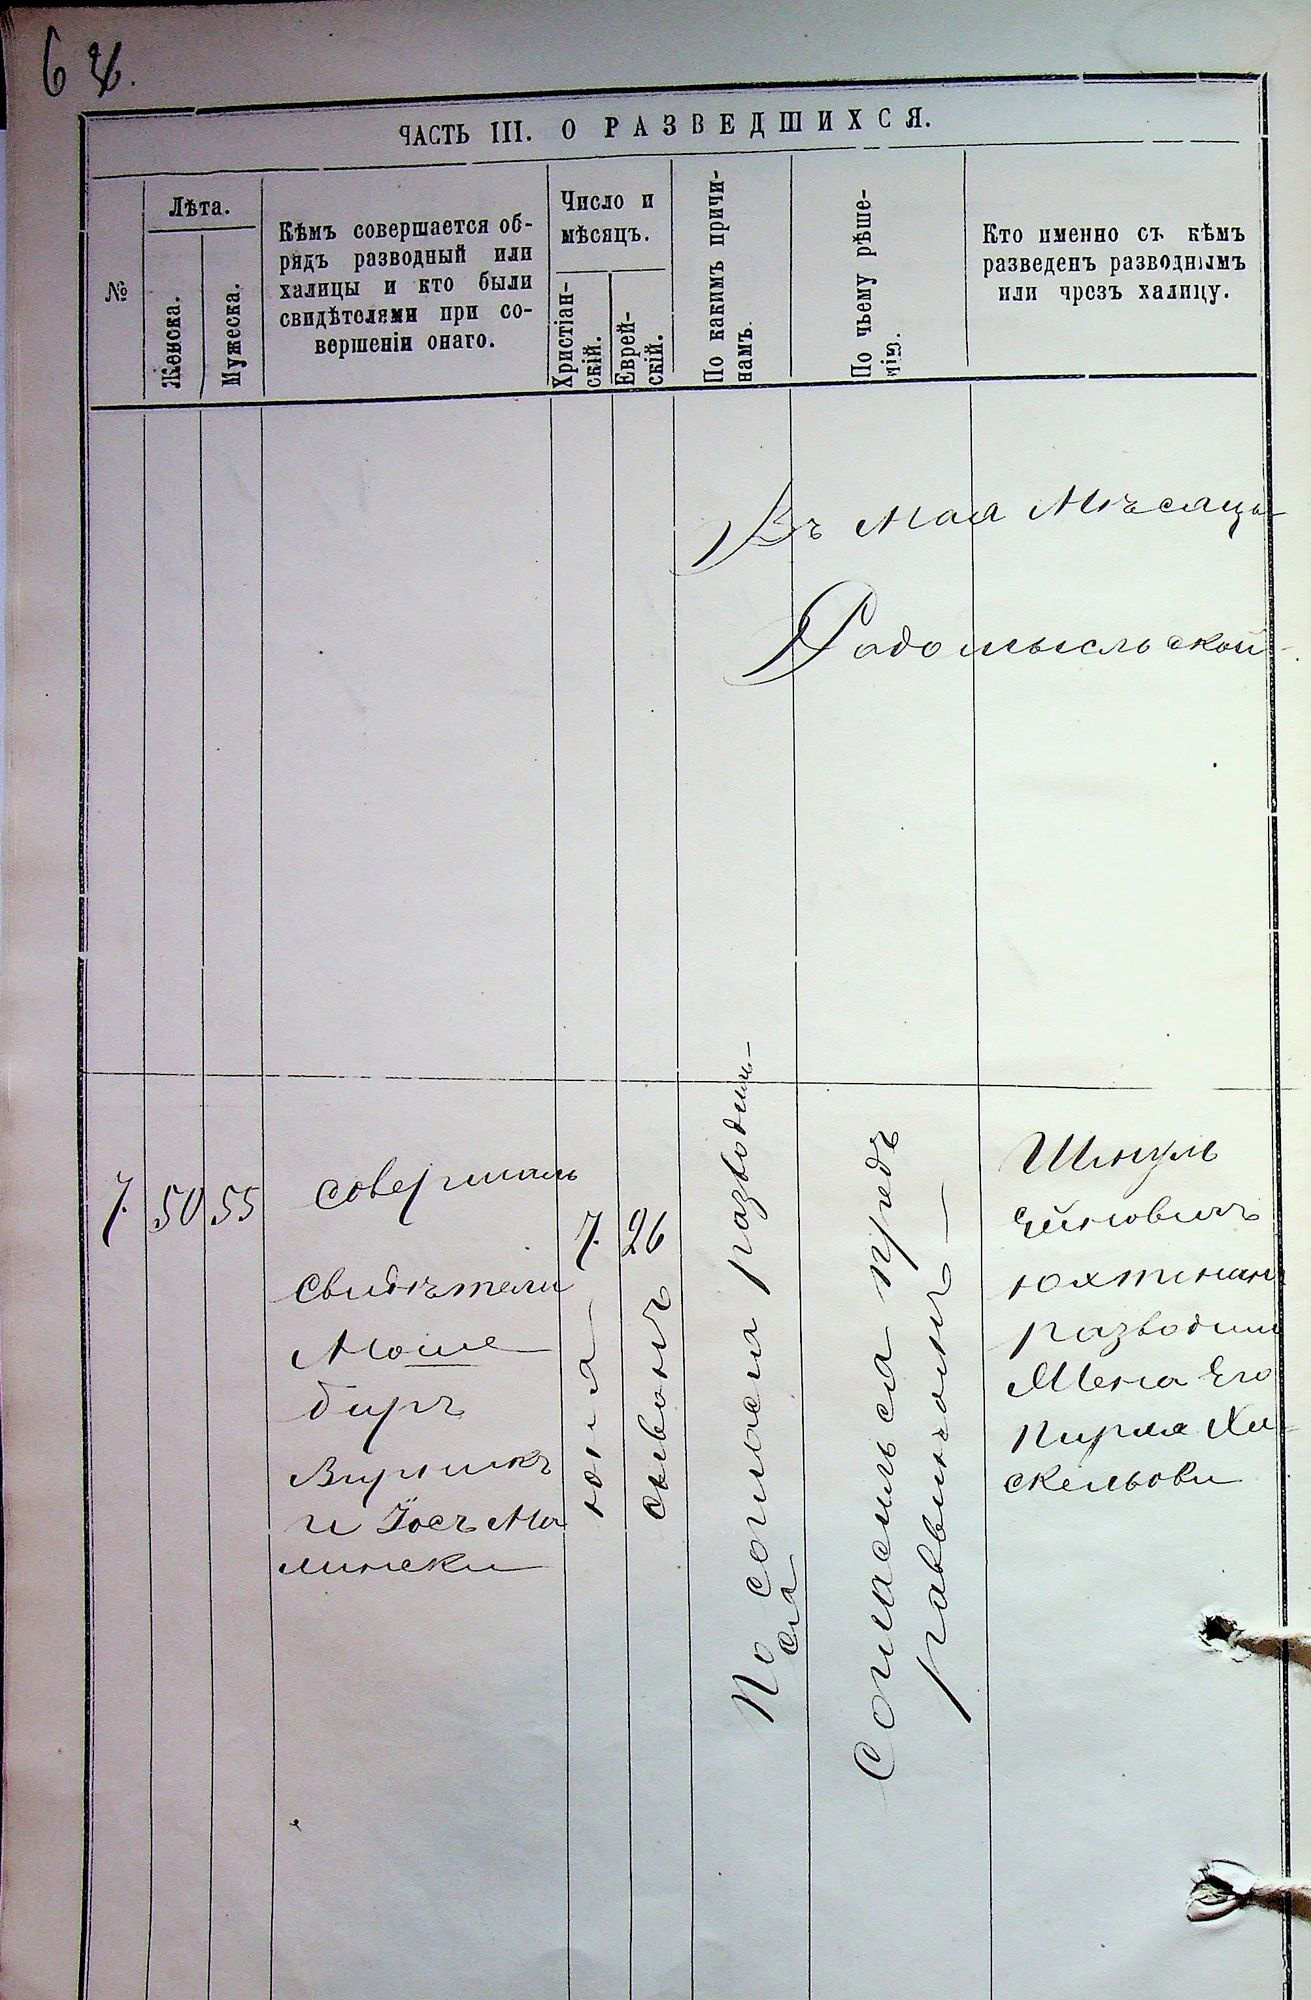 6
ЧАСТЬ III. О РАЗВЕДШИХСЯ.
№
Лѣта.
Женска.
Мужеска.
Кѣмъ совершается об-
рядъ разводный или
халицы и кто были
свидѣтелями при со-
вершеніи онаго.
Число и
мѣсяцъ.
Христіан-
скій.
Еврей-
скій.
По какимъ причи-
намъ.
По чьему рѣше-
нію.
Кто именно съ кѣмъ
разведенъ разводнымъ
или чрезъ халицу.
Въ Мая Мѣсяца
Радомысльской
7.
50
55
совершалъ
свидѣтели
Моше
биръ
и Іосъ Ма
лински
7.
юня
26
сывонъ
По согласіи разводили
ся
Согласился предъ
раввиномъ
Шмуль
разводил
Жена Его
Пирля Ха
скельови